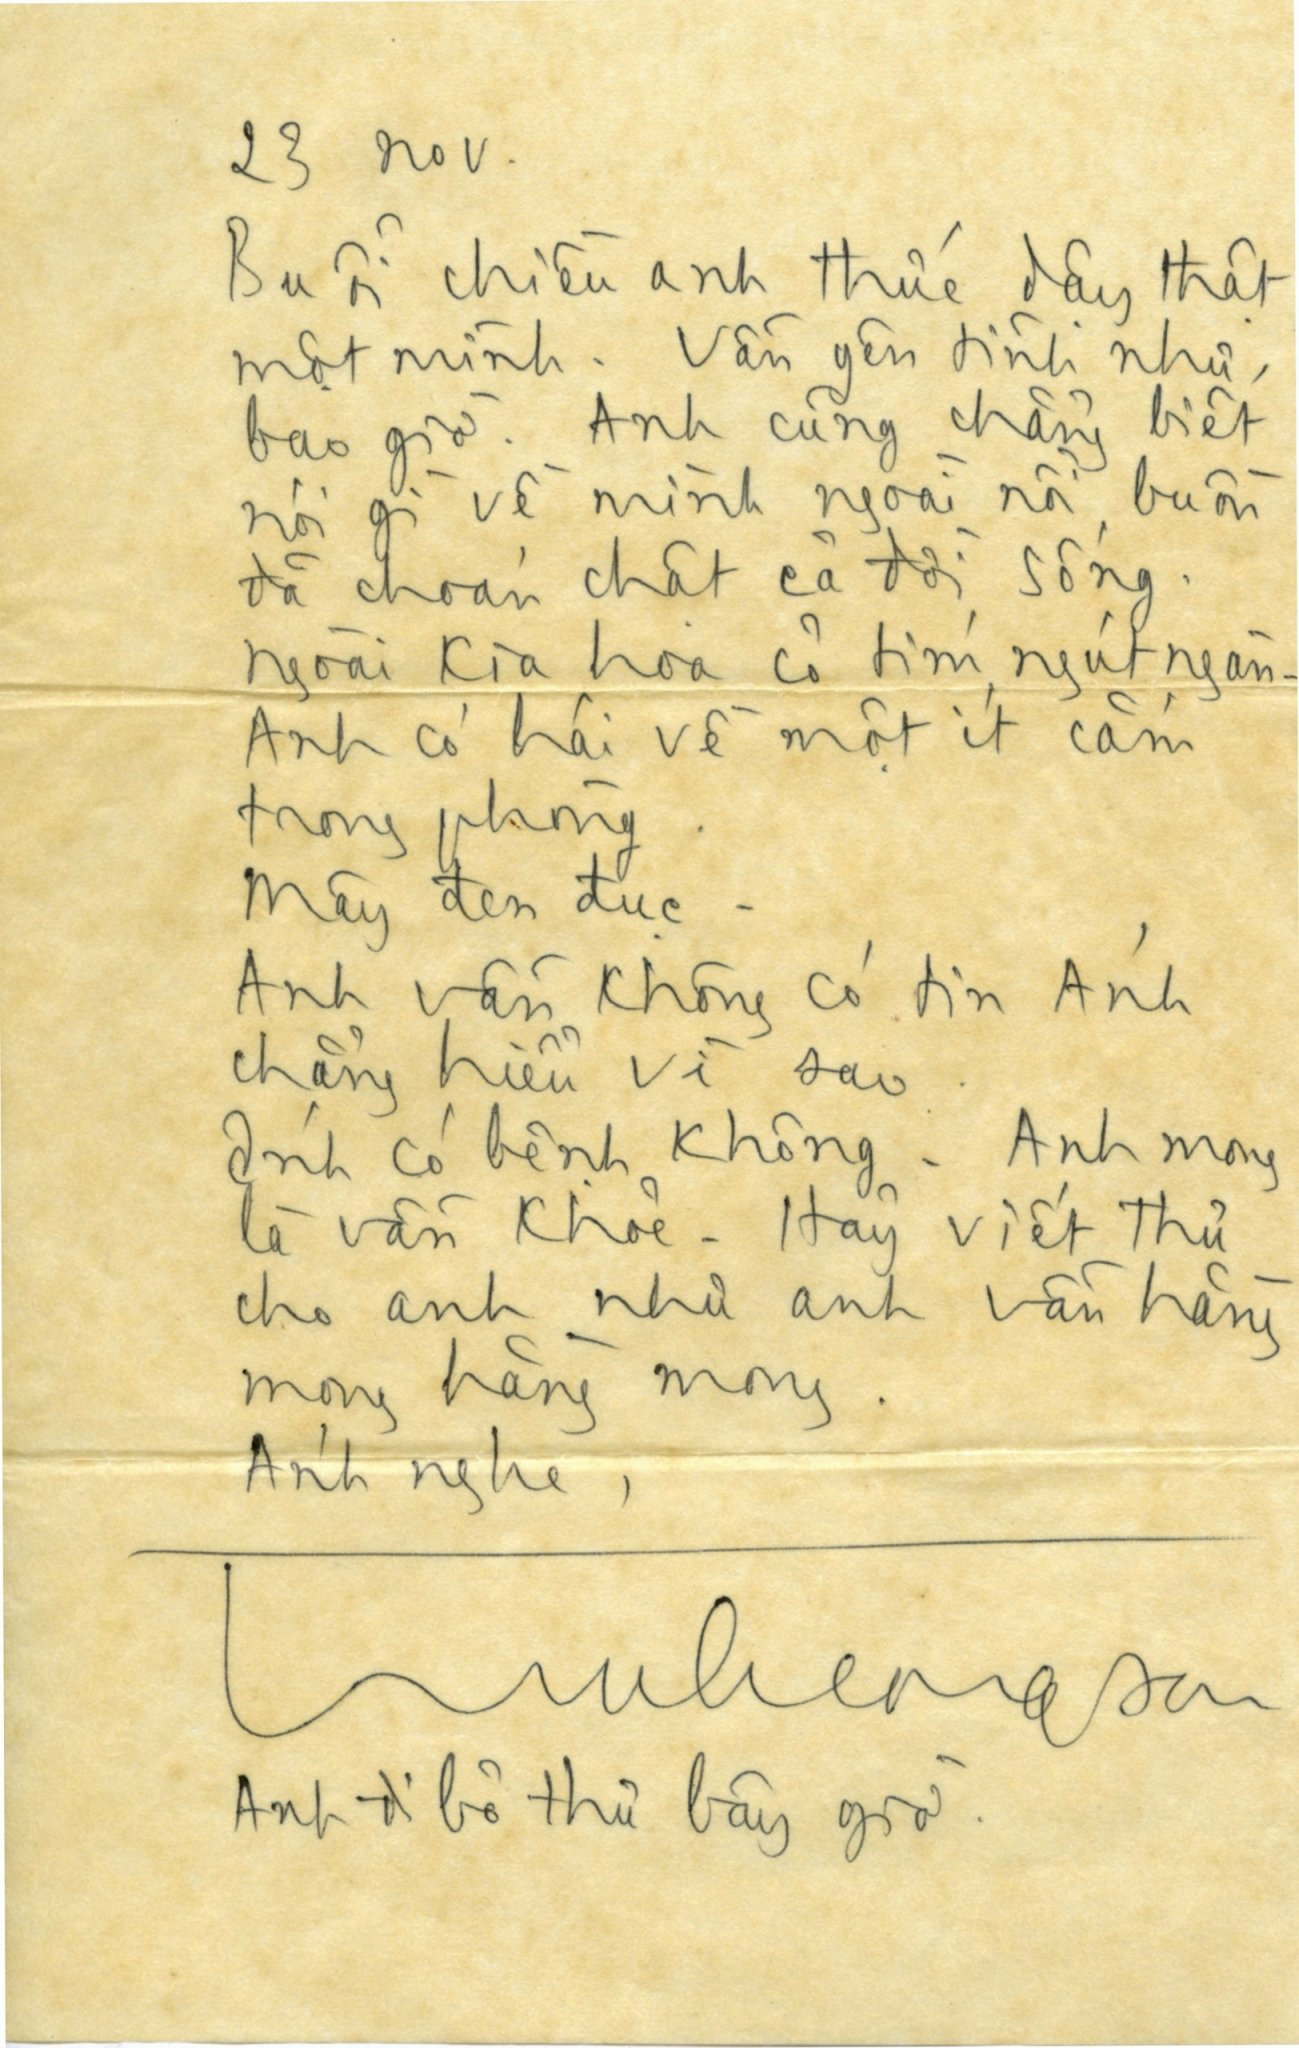 23 nov.
Buổi chiều anh thức dậy thật
một mình. Vẫn yên tĩnh như
bao giờ. Anh cũng chẳng biết
nói gì về mình ngoài nỗi buồn
đã choán chật cả đời sống.
Ngoài kia hoa cỏ tím ngút ngàn -
Anh có hái về một ít cắm
trong phòng.
Mây đen đục -
Anh vẫn không có tin Ánh
chẳng hiểu vì sao.
Ánh có bệnh không - Anh mong
là vẫn khỏe - Hãy viết thư
cho anh như anh vẫn hằng
mong hằng mong.
Ánh nghe,
Anh đi bỏ thư bây giờ.